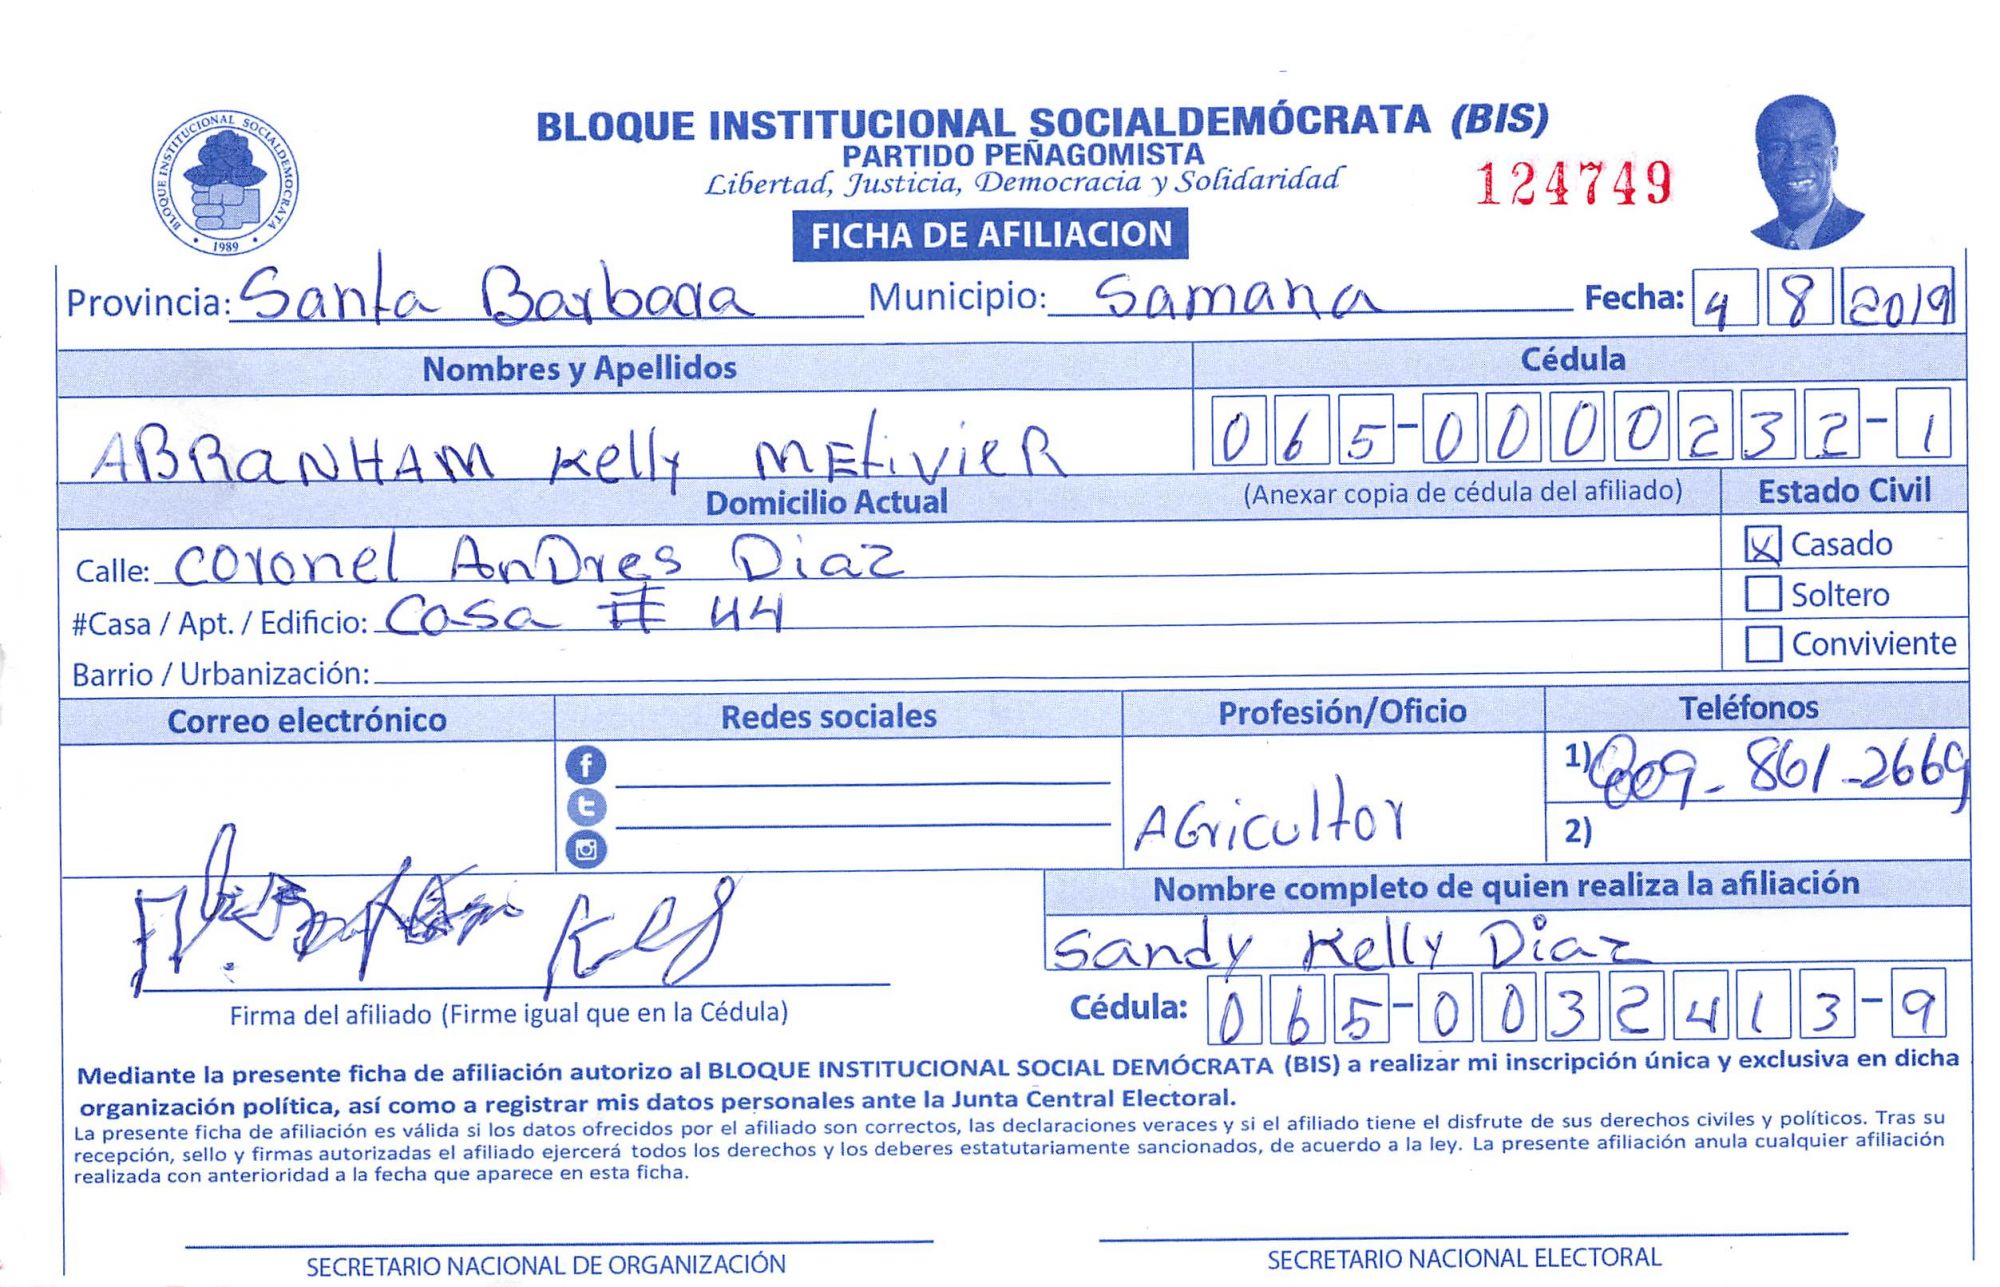 BLOQUE INSTITUCIONAL SOCIALDEMOCRATA
1989
BLOQUE INSTITUCIONAL SOCIALDEMÓCRATA (BIS)
PARTIDO PEÑAGOMISTA
Libertad, Justicia, Democracia y Solidaridad
124749
FICHA DE AFILIACION
Provincia: Santa Barbara Municipio: Samana Fecha: 4 8 2019
Nombres y Apellidos Cédula
ABRANHAM Kelly METivieR 065-0000232-1
Domicilio Actual (Anexar copia de cédula del afiliado) Estado Civil
Calle: Coronel AnDres Diaz
X Casado
#Casa / Apt. / Edificio: Casa # 44
Soltero
Barrio / Urbanización:
Conviviente
Correo electrónico Redes sociales Profesión/Oficio Teléfonos
1) 809-861-2669
AGricultor
2)
Nombre completo de quien realiza la afiliación
Sandy Kelly Diaz
Firma del afiliado (Firme igual que en la Cédula)
Cédula: 065-0032413-9
Mediante la presente ficha de afiliación autorizo al BLOQUE INSTITUCIONAL SOCIAL DEMÓCRATA (BIS) a realizar mi inscripción única y exclusiva en dicha
organización política, así como a registrar mis datos personales ante la Junta Central Electoral.
La presente ficha de afiliación es válida si los datos ofrecidos por el afiliado son correctos, las declaraciones veraces y si el afiliado tiene el disfrute de sus derechos civiles y políticos. Tras su
recepción, sello y firmas autorizadas el afiliado ejercerá todos los derechos y los deberes estatutariamente sancionados, de acuerdo a la ley. La presente afiliación anula cualquier afiliación
realizada con anterioridad a la fecha que aparece en esta ficha.
SECRETARIO NACIONAL DE ORGANIZACIÓN SECRETARIO NACIONAL ELECTORAL